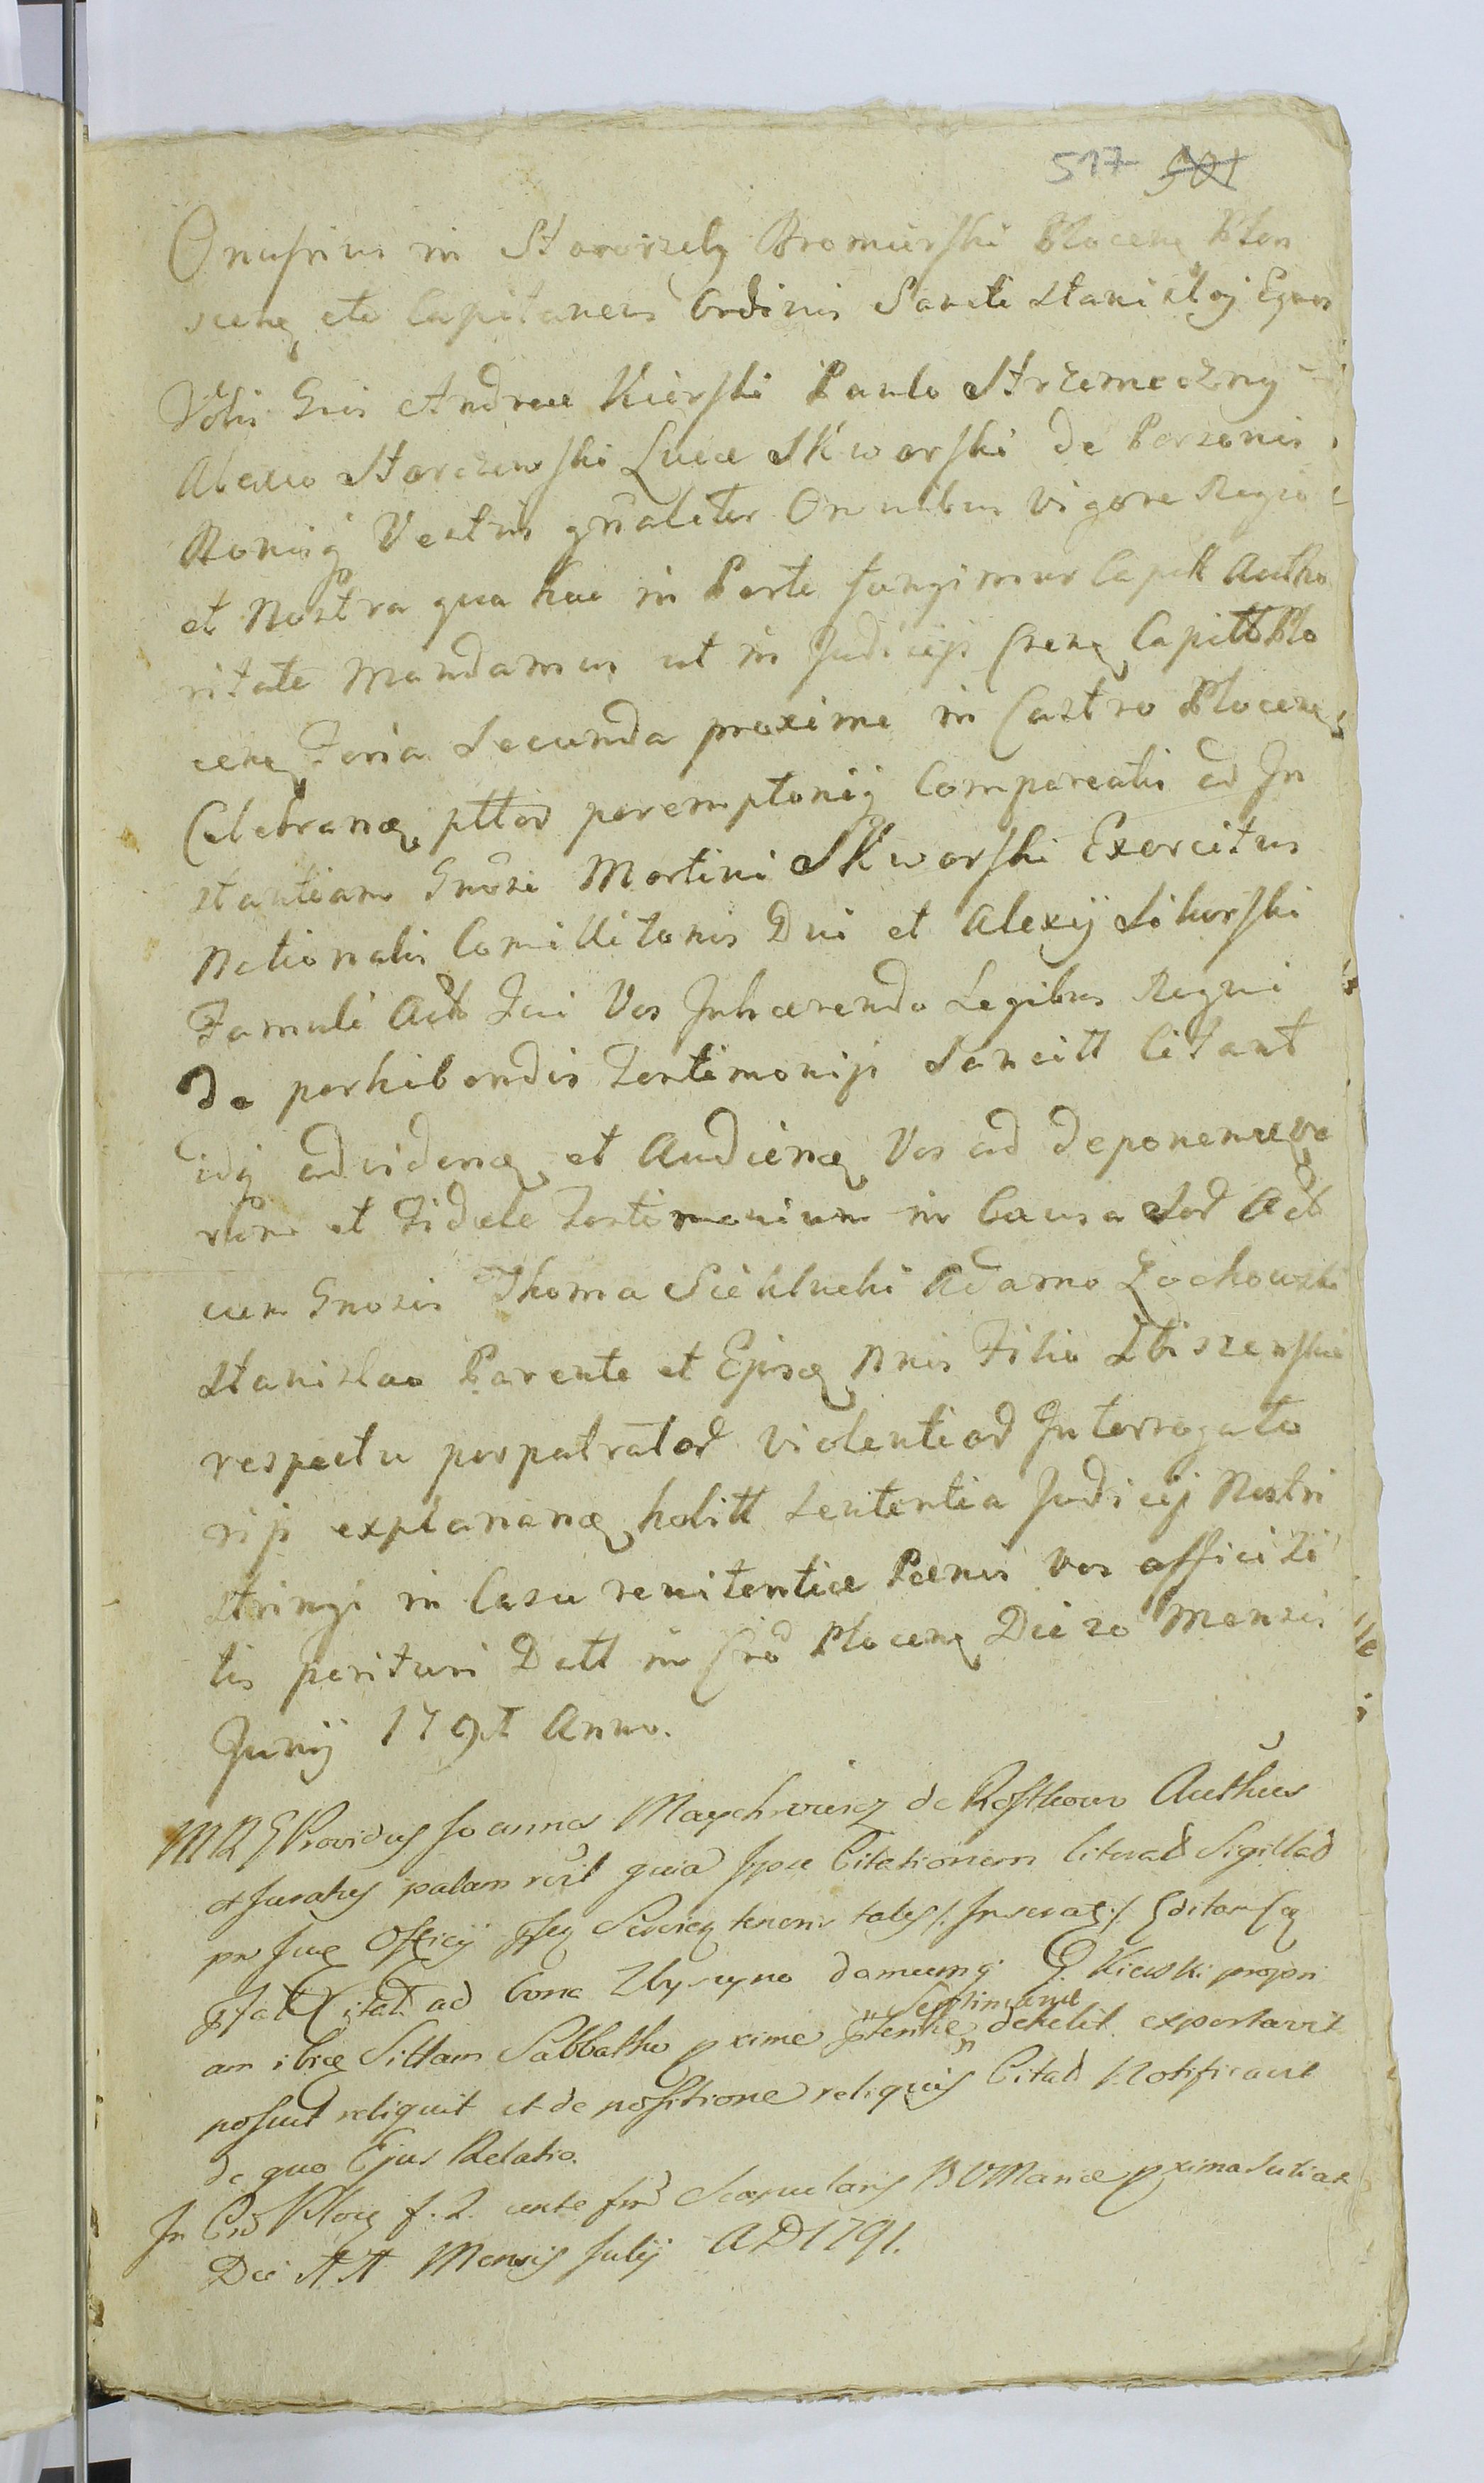 517 501
Onufrius in Stavorzely Bromierski Plocens Plon
scens etc Capitaneus Ordinis Sancti Stanislaj Eques
Vobis Gnis Andreae Kierski Paulo Strzemeczny
Alexio Starczewski Lucae Skwarski de Personis
Bonisq Vestris gnaliter Omnibus vigore Regio
et Nostra qua hac in Parte fungimur Capitt Autho
ritate Mandamus ut in Judicijs Crens Capitt Plo
cens Feria Secunda proxime in Castro Plocens
Celebrand pttor peremptorij Compareatis ad In
stantiam Gnosi Martini Skwarski Exercitus
Nationalis Comilitonis Dni et Alexij Sikorski
Famuli Act Qui Vos Inhaerendo Legibus Regni
de perhibendis Testimonijs Sancitt Citant
idq ad vidend et Audiend Vos ad deponend ve
rum et Fidele Testimonium in Causa Eor Act
cum Gnosis Thoma Siekluchi Adamo Zochowski
Stanislao Parente et Ejusd Nnis Filio Zbiszewski
respectu perpatrator violentiar Interrogato
rijs explanand holitt Sententia Judicij Nostri
stringi in Casu renitentiae Paenis vos affici Ci
tis perituri Datt in Cro Plocens Die 20 Mensis
Junij 1791 Anno.
M R G Providus Joannes Maychrowicz de Rostkowo Authus
et Juratus palam rcvit quia Ipse Citationem literal Sigillad
pr Sue Officij
ad bona Zbyszyno domumq G. Kiewski propri
Septimanae
am ibiq Sittam Sabbatho pxime detulit exportavit
posuit reliquit et de positione reliquis Citad Notificavit
de quo Ejus Relatio.
In Cro Ploc f. 2. ante frd Scapularis B V Mariae pxima
Die 11 Mensis Julij A D 1791.